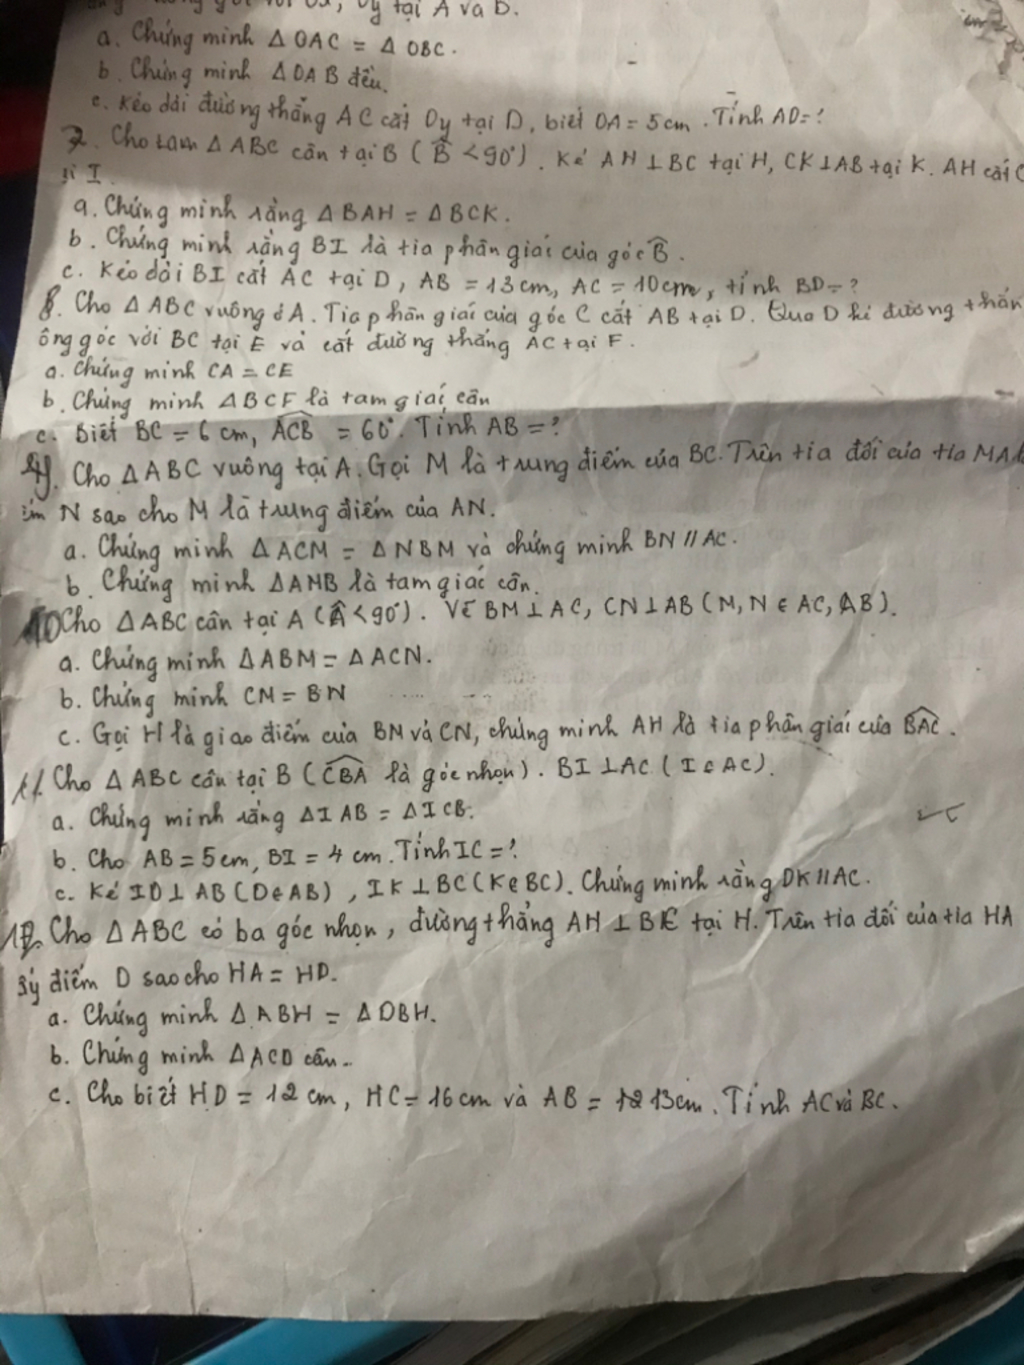 góc với Ox, Oy tại A và B.
a. Chứng minh Δ OAC = Δ OBC.
b. Chứng minh Δ OAB đều.
c. Kéo dài đường thẳng AC cắt Oy tại D, biết OA = 5cm. Tính AD = ?
7. Cho tam Δ ABC cân tại B ( B̂ < 90°). Kẻ AH ⊥ BC tại H, CK ⊥ AB tại K. AH cắt C
ại I.
a. Chứng minh rằng Δ BAH = Δ BCK.
b. Chứng minh rằng BI là tia phân giác của góc B̂.
c. Kéo dài BI cắt AC tại D, AB = 13cm, AC = 10cm, tính BD = ?
8. Cho Δ ABC vuông ở A. Tia phân giác của góc C cắt AB tại D. Qua D kẻ đường thẳn
ông góc với BC tại E và cắt đường thẳng AC tại F.
a. Chứng minh CA = CE
b. Chứng minh Δ BCF là tam giác cân
c. Biết BC = 6 cm, ACB = 60°. Tính AB = ?
9. Cho Δ ABC vuông tại A. Gọi M là trung điểm của BC. Trên tia đối của tia MA
N sao cho M là trung điểm của AN.
a. Chứng minh Δ ACM = Δ NBM và chứng minh BN // AC.
b. Chứng minh Δ AMB là tam giác cân.
10 Cho Δ ABC cân tại A (Â < 90°). Vẽ BM ⊥ AC, CN ⊥ AB (M, N ∈ AC, AB).
a. Chứng minh Δ ABM = Δ ACN.
b. Chứng minh CM = BN
c. Gọi H là giao điểm của BN và CN, chứng minh AH là tia phân giác của BAC.
11. Cho Δ ABC cân tại B (CBA là góc nhọn). BI ⊥ AC ( I ∈ AC).
a. Chứng minh rằng Δ IAB = Δ ICB.
b. Cho AB = 5cm, BI = 4 cm. Tính IC = ?
c. Kẻ ID ⊥ AB (D ∈ AB), IK ⊥ BC (K ∈ BC). Chứng minh rằng DK // AC.
12. Cho Δ ABC có ba góc nhọn, đường thẳng AH ⊥ BC tại H. Trên tia đối của tia HA
ấy điểm D sao cho HA = HD.
a. Chứng minh Δ ABH = Δ DBH.
b. Chứng minh Δ ACD cân.
c. Cho biết HD = 12 cm, HC = 16 cm và AB = 13cm. Tính AC và BC.